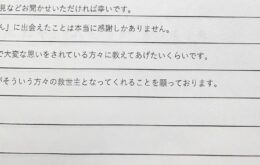 見などお聞かせいただければ幸いです。
ん」に出会えたことは本当に感謝しかありません。
で大変な思いをされている方々に教えてあげたいくらいです。
がそういう方々の救世主となってくれることを願っております。